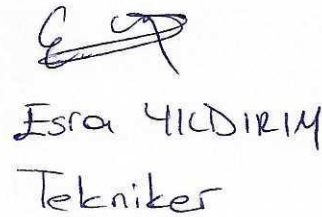 Esra YILDIRIM
Tekniker